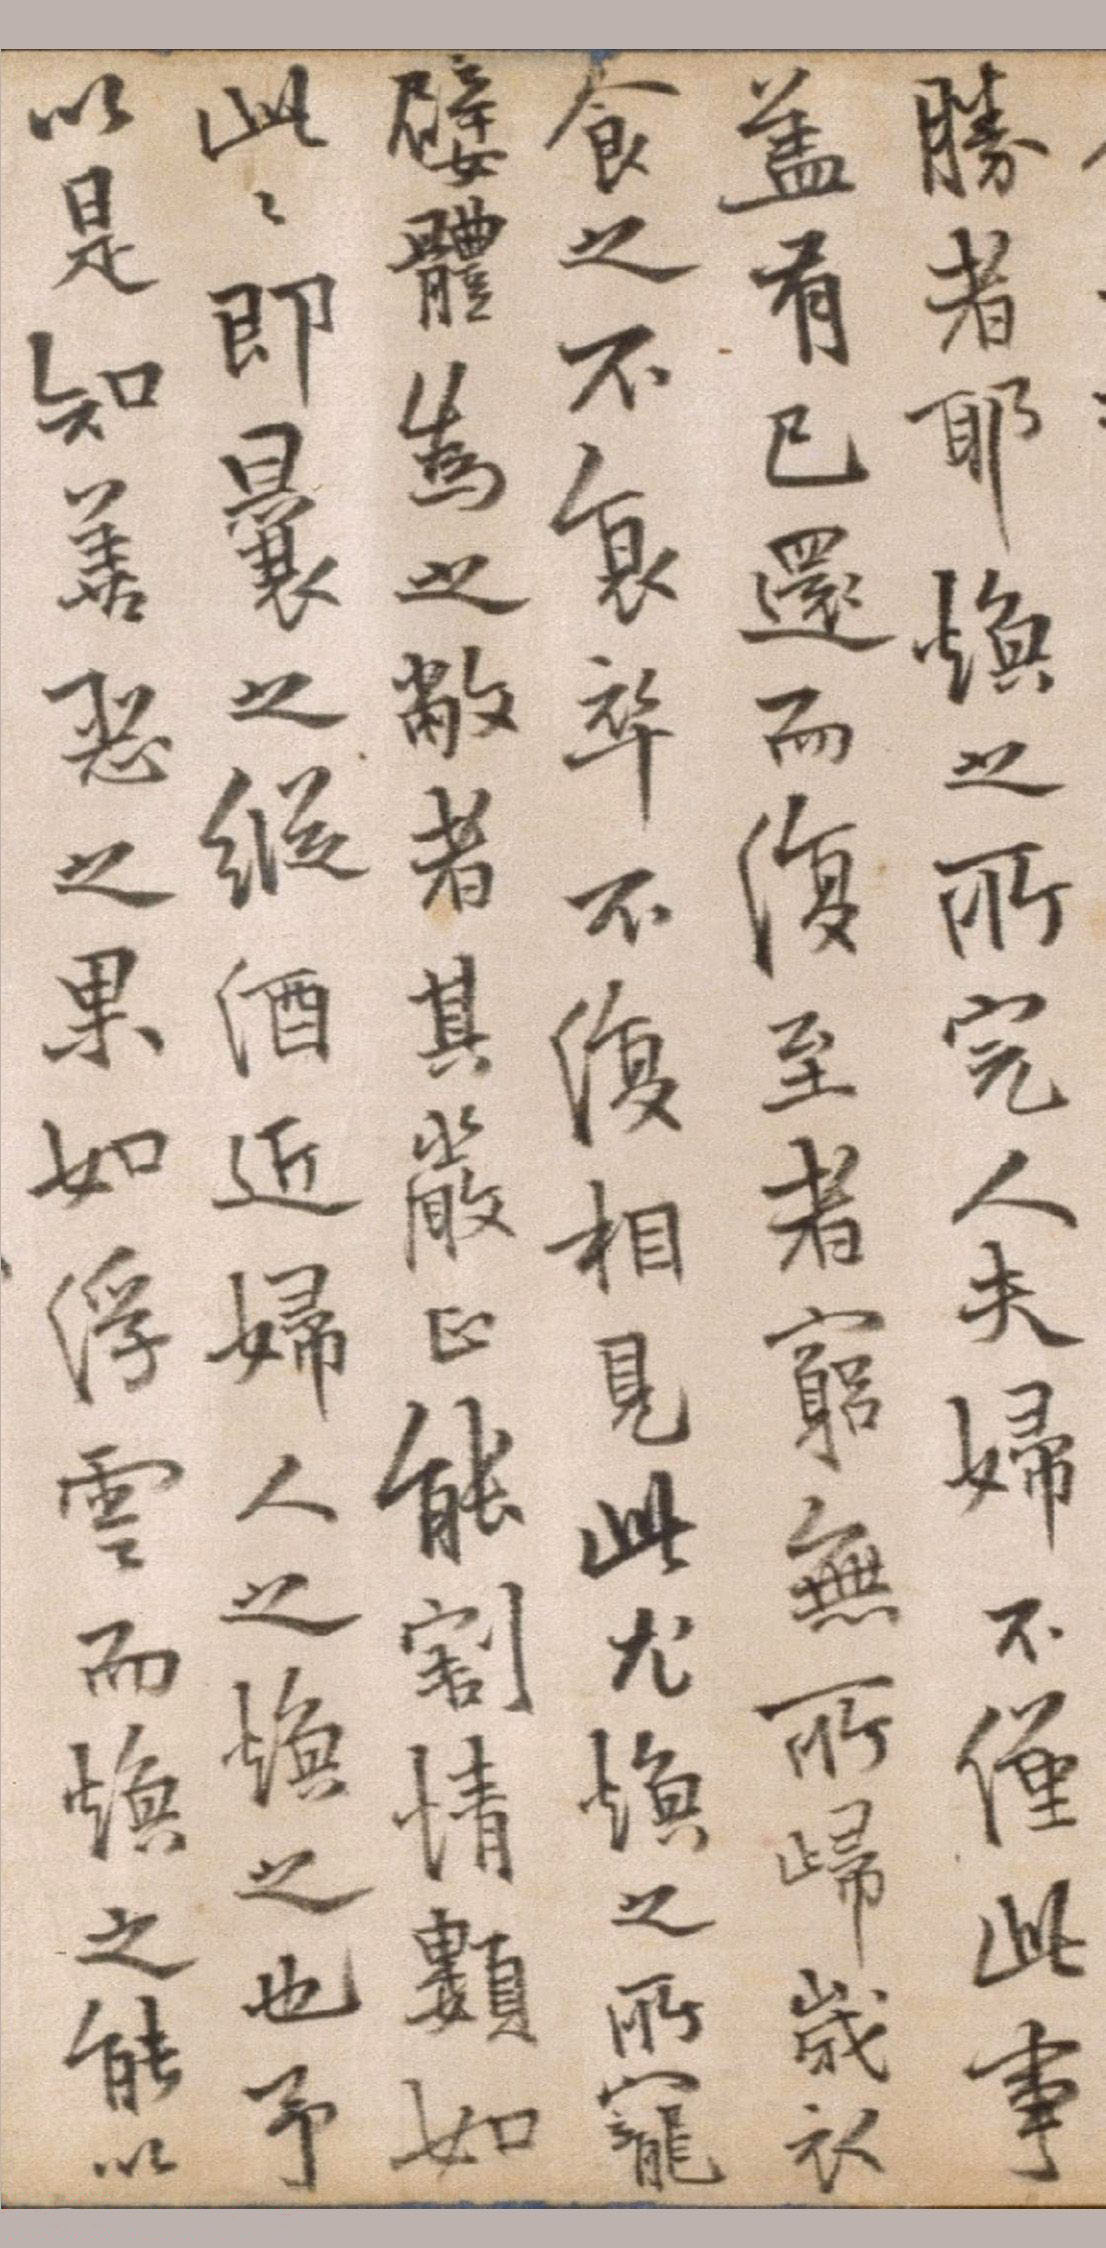 勝者耶煥之所完人夫婦不僅此事
蓋有已還而復至者窮無所歸歲衣
食之不衰卒不復相見此尤煥之所寵
嬖體為之敝者其嚴正能割情類如
此〻即曩之縱酒近婦人之煥之也予
以是知善惡之果如浮雲而煥之能以